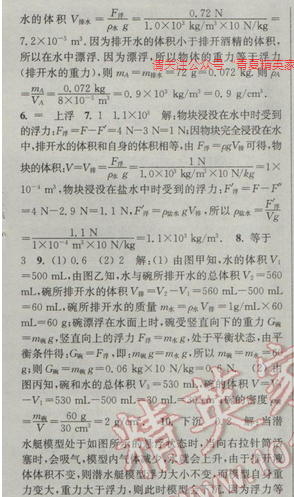 水的体积 V排水 = F浮/ρ水 g = 0.72 N/1.0×10³ kg/m³×10 N/kg =
7.2×10⁻⁵ m³. 因为排开水的体积小于排开酒精的体积,
所以在水中漂浮. 因为漂浮, 所以物体的重力等于浮力
(排开水的重力), 则 mA = m排水 = 72 g = 0.072 kg. 则 ρA
= mA/VA = 0.072 kg/8×10⁻⁵ m³ = 0.9×10³ kg/m³ = 0.9 g/cm³.
6. = 上浮 7. 1 1.1×10³ 解:物块浸没在水中时受
到的浮力:F浮=F−F′=4 N−3 N=1 N;因物块完全浸没在水
中,排开水的体积和自身的体积相等,由 F浮=ρgV排可得,物
块的体积:V=V排= F浮/ρ水 g = 1 N/1.0×10³ kg/m³×10 N/kg =1×
10⁻⁴ m³,物块浸没在盐水中时受到的浮力:F′浮=F−F″
=4 N−2.9 N=1.1 N,F′浮=ρ盐水 gV排,所以 ρ盐水= F′浮/gV排
= 1.1 N/1×10⁻⁴ m³×10 N/kg =1.1×10³ kg/m³. 8. 等于
3 9. (1)0.6 (2)2 解:(1)由图甲知,水的体积 V₁
=500 mL,由图乙知,水与碗所排开水的总体积 V₂=560
mL,碗所排开水的体积 V排=V₂−V₁=560 mL−500 mL
=60 mL,碗所排开水的质量 m水=ρ水 V排=1g/mL×60
mL=60 g;碗漂浮在水面上时,碗受竖直向下的重力 G碗
=m碗g,竖直向上的浮力 F浮=m水g,处于平衡状态,由平
衡条件得:G碗=F浮,即:m碗g=m水g,所以 m碗=m水=60
g;则 G碗=m碗g=0.06 kg×10 N/kg=0.6 N. (2)由
图丙知,碗和水的总体积 V₃=530 mL,碗的体积 V=V₃
−V₁=530 mL−500 mL=30 mL=30 cm³,碗的密度 ρ碗
= m碗/V = 60 g/30 cm³ =2 g/cm³. 10. 下沉 0.2 解:当潜
水艇模型处于如图所示的悬浮状态时,当向右拉针筒活
塞时,会吸气,模型内气体减少,水就会上升,由于排开液
体体积不变,则潜水艇模型浮力大小不变,而模型自身重
力变大,重力大于浮力,则此时模型会下沉.上升为浮力等